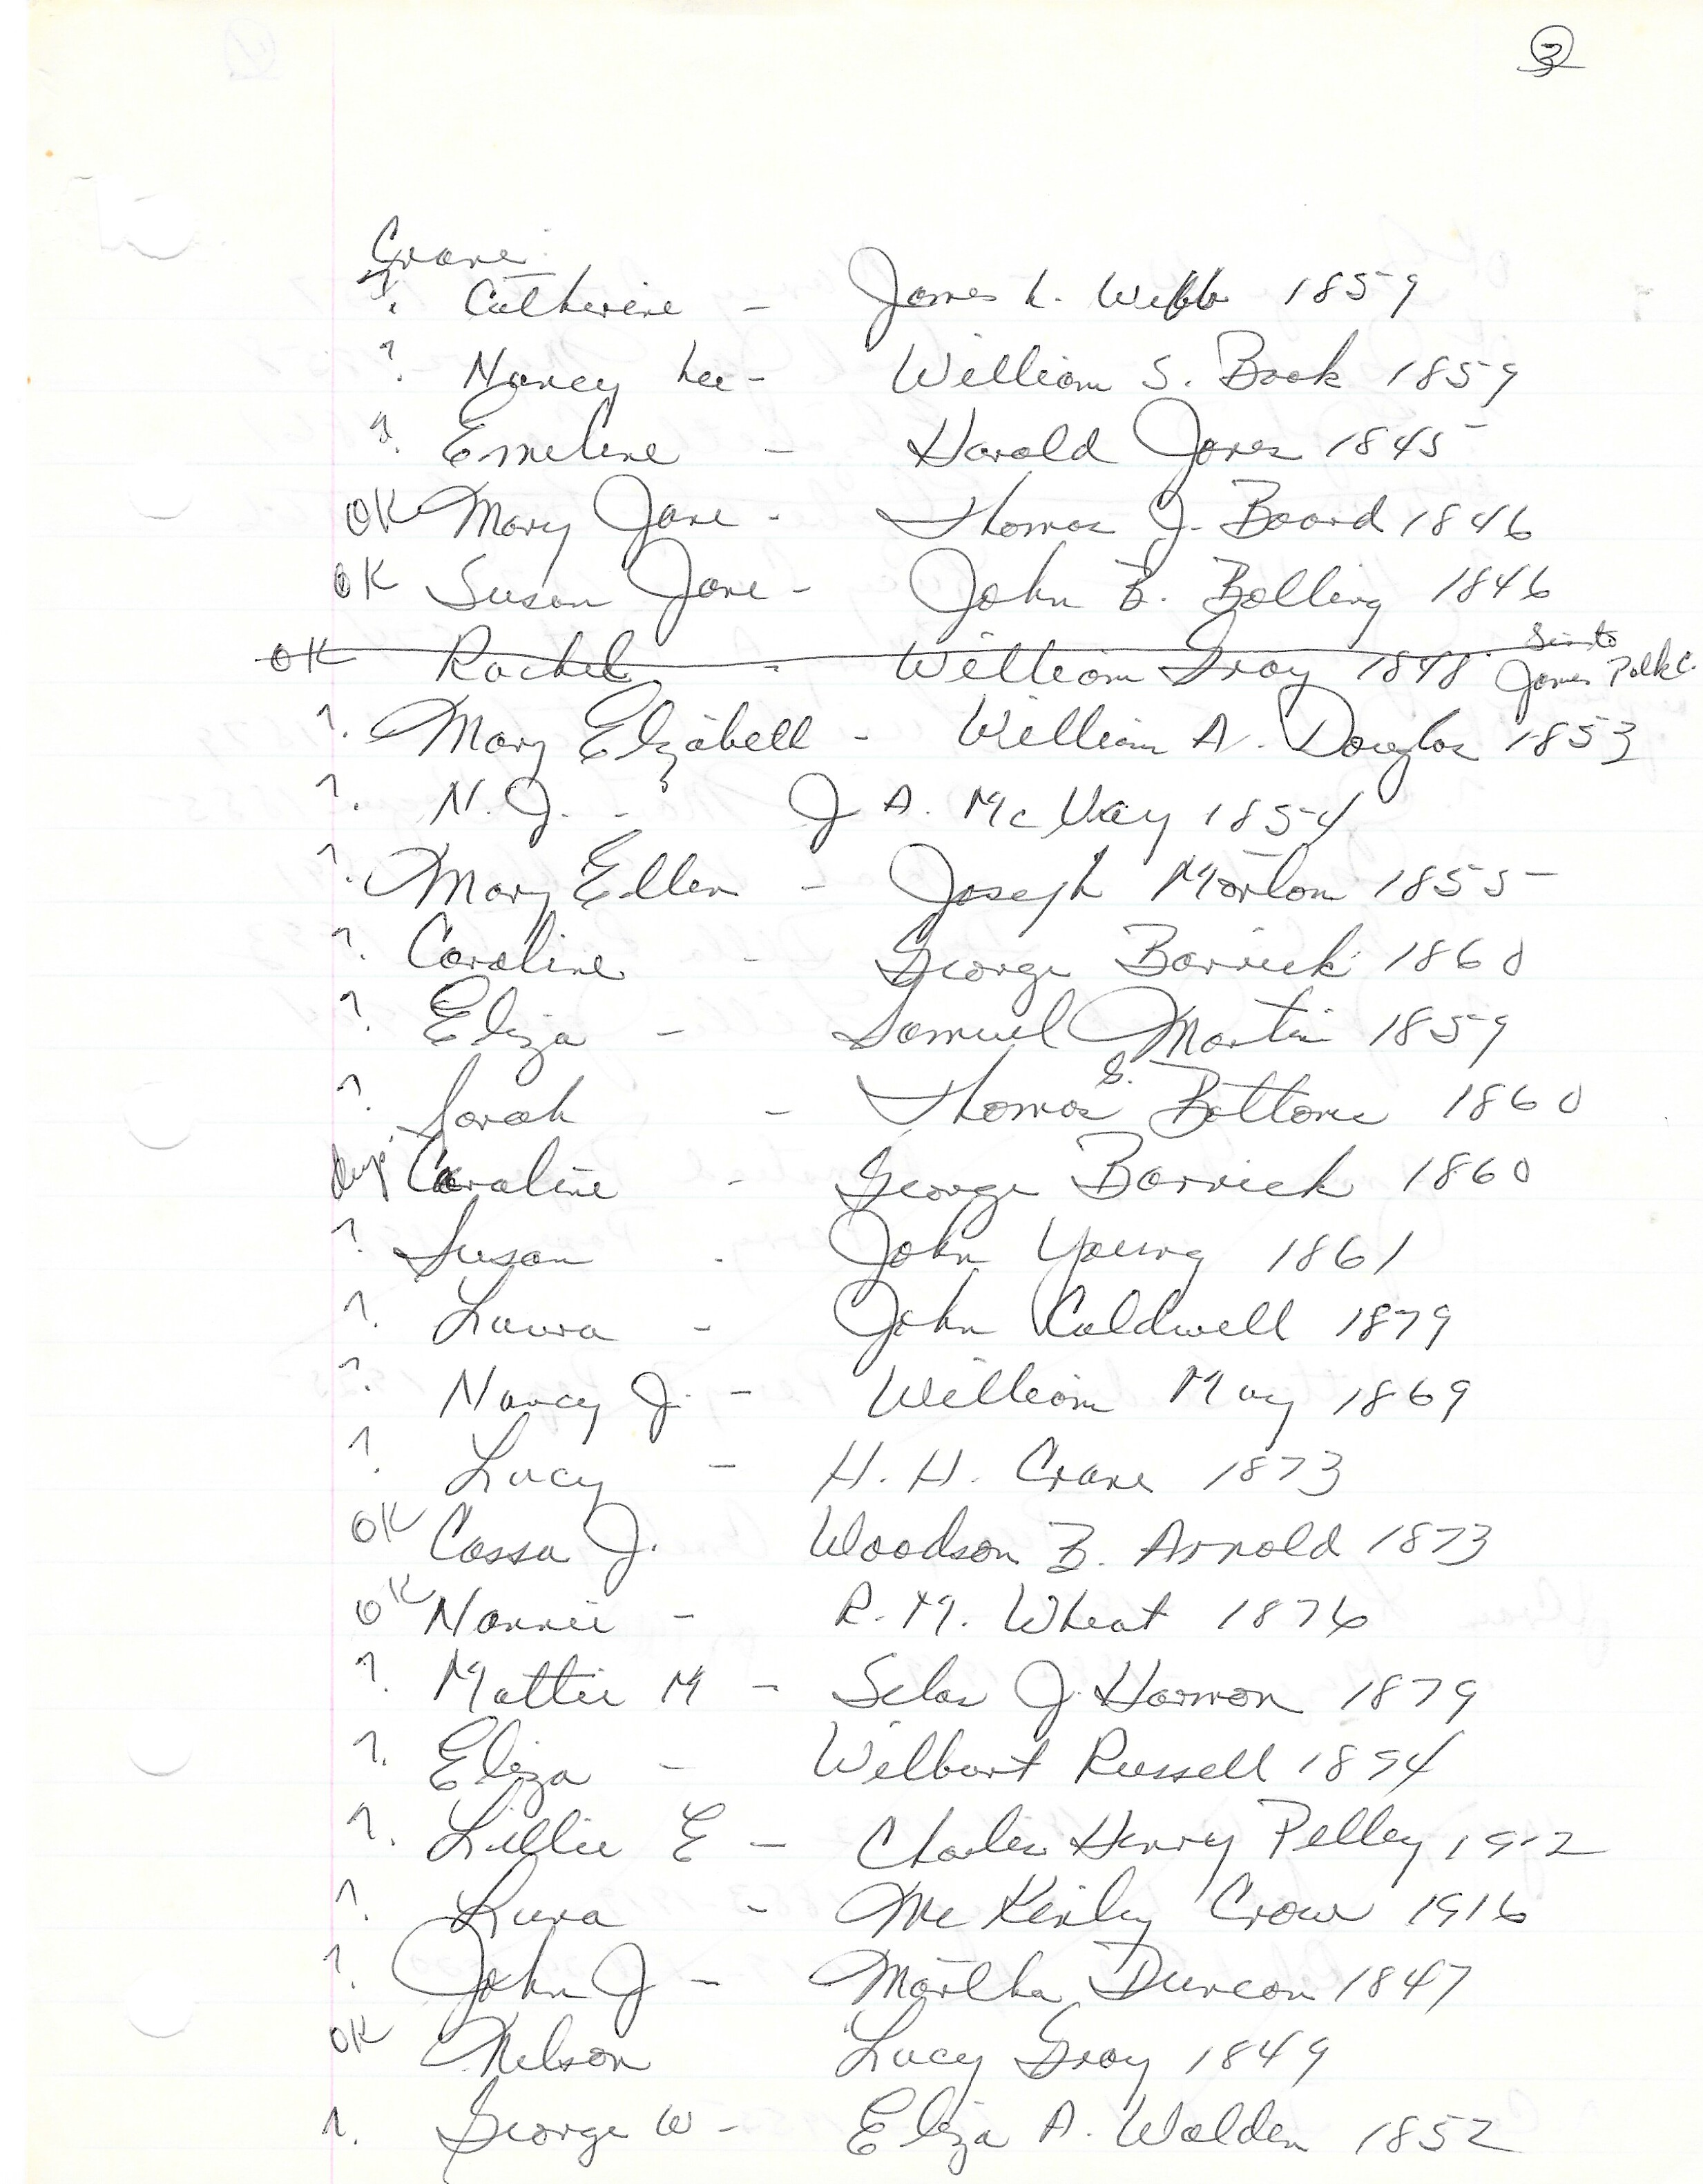 3
Crane
? Catherine - James L. Webb 1859
? Nancy Lee - William S. Book 1859
? Emeline - Harold Jones 1845
OK Mary Jane - Thomas J. Board 1846
OK Susan Jane - John B. Bolling 1846
OK Rachel - William Gray 1848 Sis to James Polk C.
? Mary Elizabell - William A. Douglas 1853
? N. J. - J A. McVay 1854
? Mary Ellen - Joseph Morton 1855
? Caroline - George Barrick 1860
? Eliza - Samuel Martin 1859
? Sarah - Thomas S. Bottoms 1860
dup. Caroline - George Barrick 1860
? Susan - John Young 1861
? Laura - John Caldwell 1879
? Nancy J. - William May 1869
? Lucy - H. H. Crane 1873
OK Cassa J. Woodson B. Arnold 1873
OK Nannie - R. M. Wheat 1876
? Mattie M - Silas J. Harmon 1879
? Eliza - Wilburt Russell 1894
? Lillie E - Charlie Henry Pelley 1912
? Lura - McKinley Crow 1916
? John J - Martha Duncan 1847
OK Nelson Lucy Gray 1849
? George W - Eliza A. Walden 1852